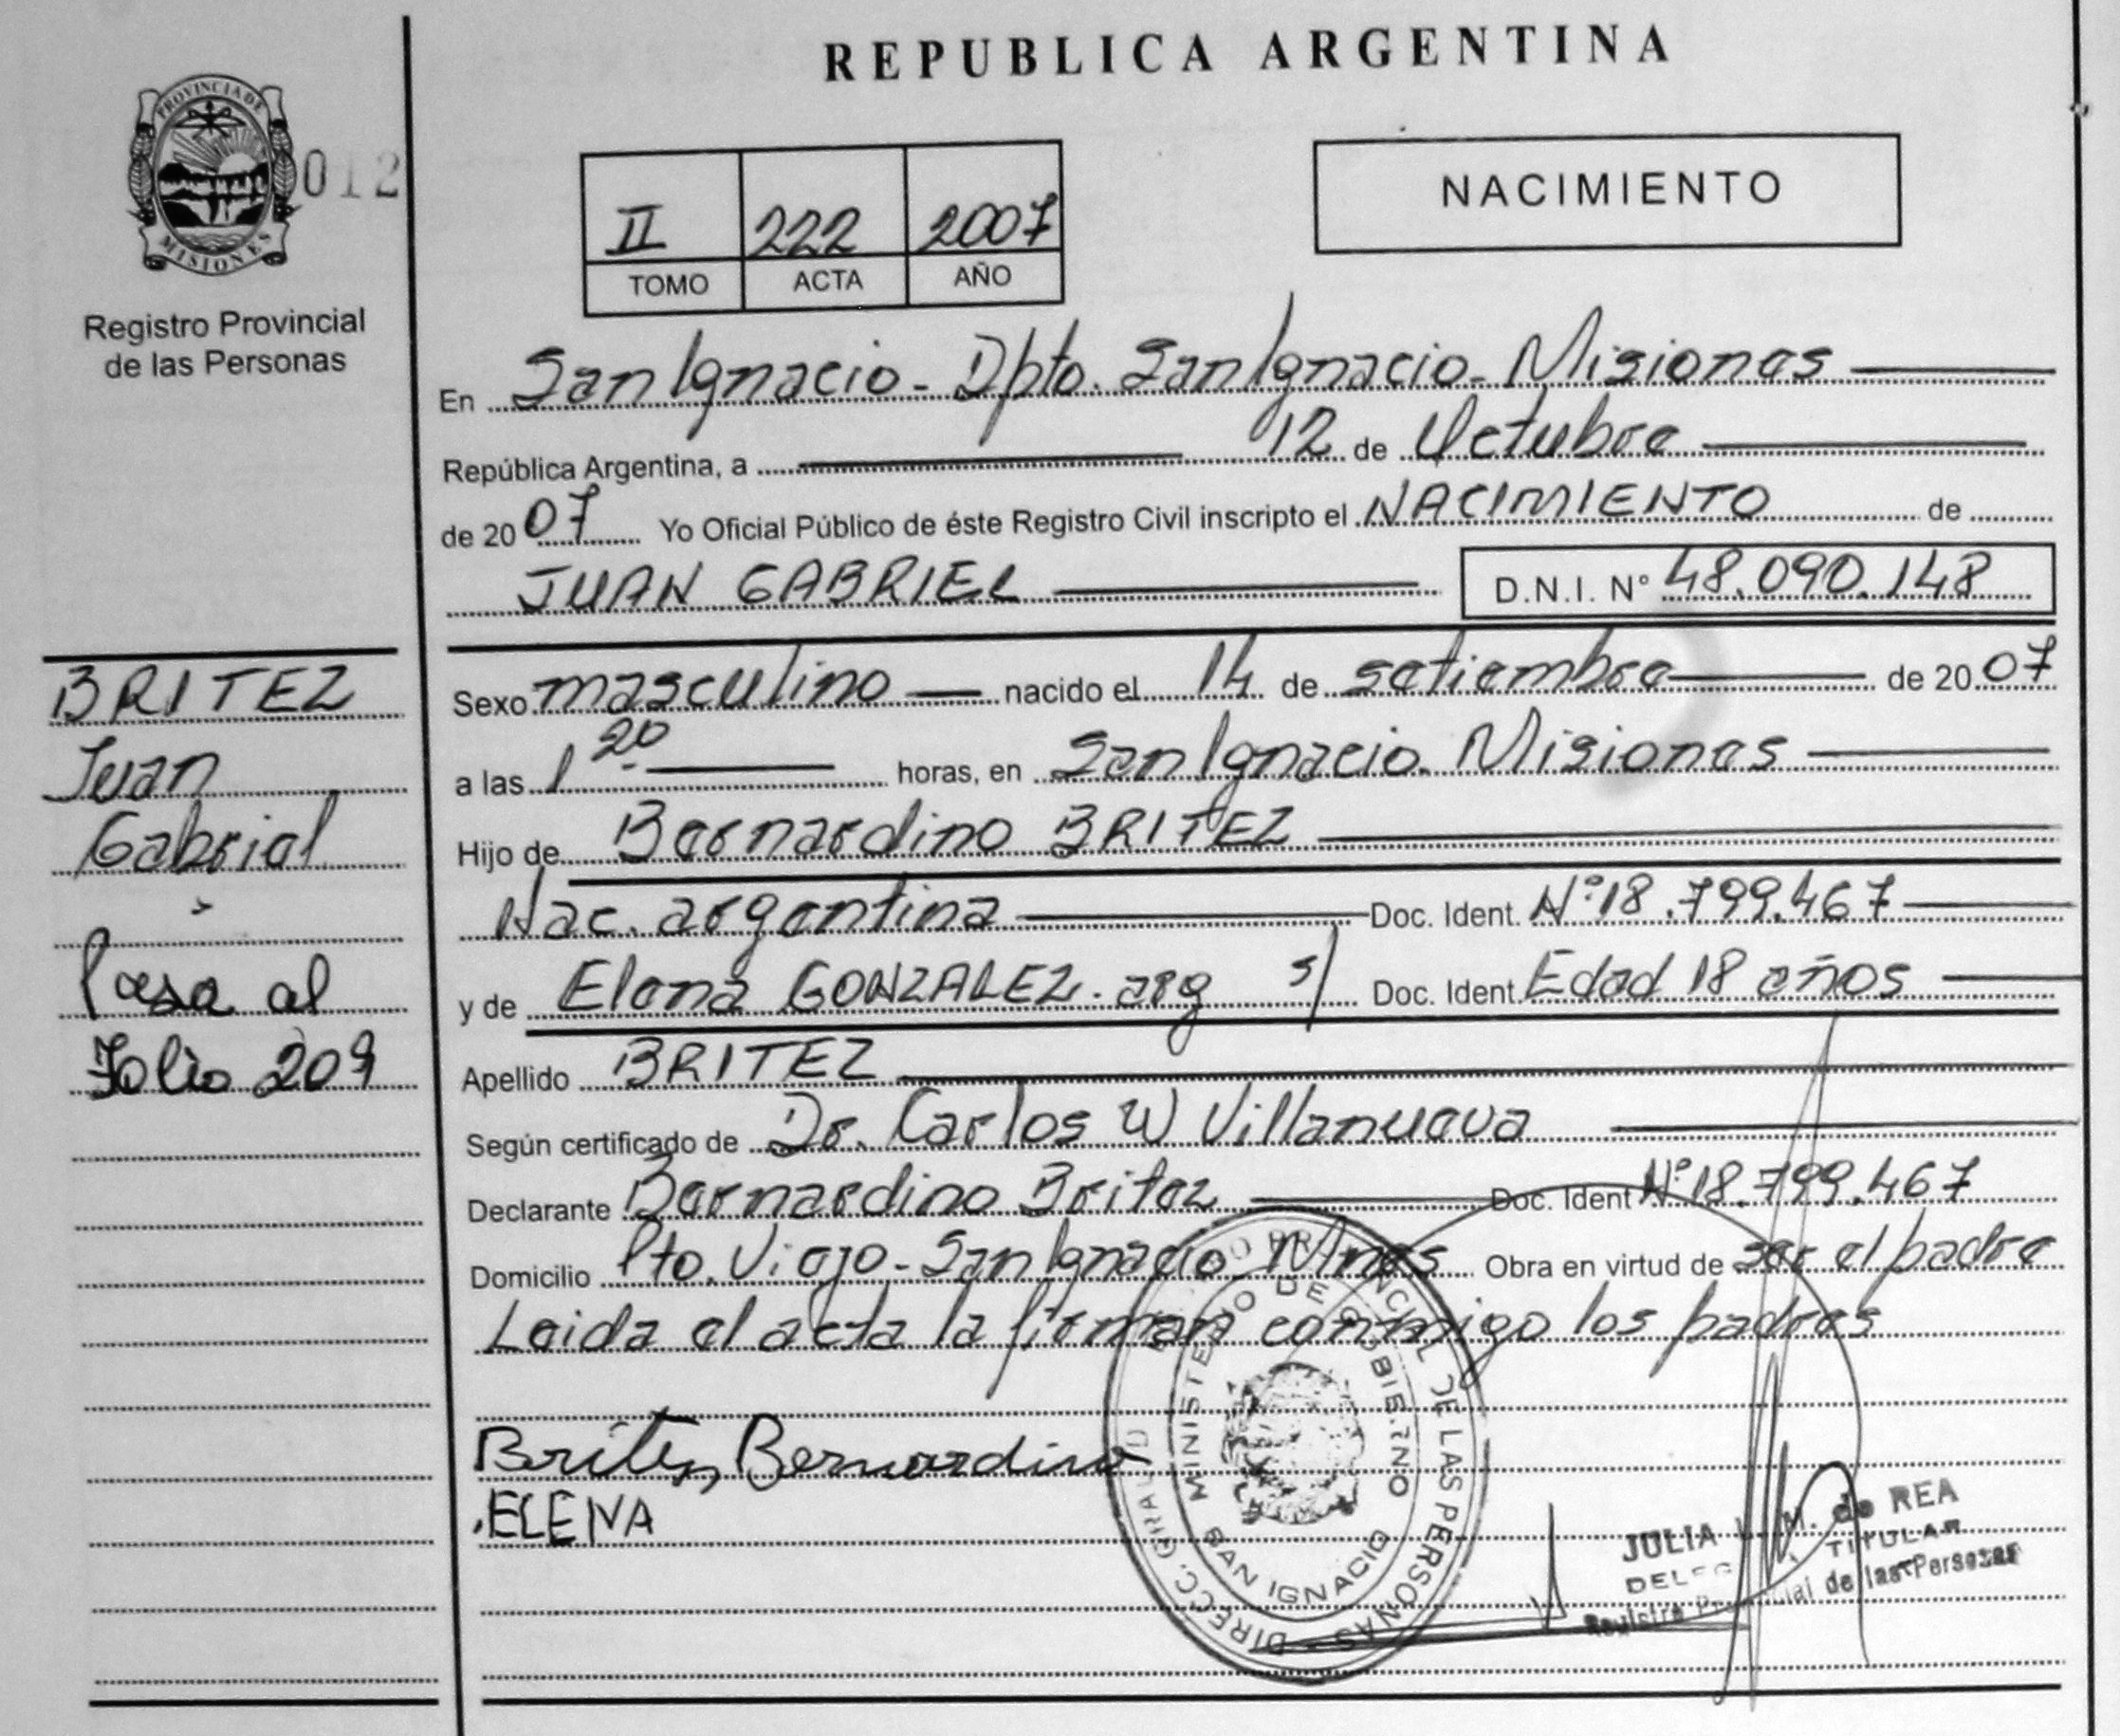 REPUBLICA ARGENTINA
PROVINCIA DE
MISIONES
012
Registro Provincial
de las Personas
II 222 2007
TOMO ACTA AÑO
NACIMIENTO
En San Ignacio - Dpto. San Ignacio - Misiones
República Argentina, a 12 de Octubre
de 2007 Yo Oficial Público de éste Registro Civil inscripto el NACIMIENTO de
JUAN GABRIEL D.N.I. N° 48.090.148
BRITEZ
Juan
Gabriel
Pasa al
Folio 209
Sexo masculino nacido el 14 de setiembre de 2007
a las 1 20 horas, en San Ignacio - Misiones
Hijo de Bernardino BRITEZ
Nac. argentina Doc. Ident. N° 18.799.467
y de Elena GONZALEZ. arg s/ Doc. Ident. Edad 18 años
Apellido BRITEZ
Según certificado de Dr. Carlos W Villanueva
Declarante Bernardino Britez Doc. Ident N° 18.799.467
Domicilio Pto. Viejo - San Ignacio Mnes Obra en virtud de ser el padre
Leida el acta la firman conmigo los padres
Britez Bernardino
ELENA
MINISTERIO DE GOBIERNO
SAN IGNACIO
DIRECC. GRAL. D PROVINCIAL DE LAS PERSONAS
JULIA M. de REA
TITULAR
Registro Provincial de las Personas